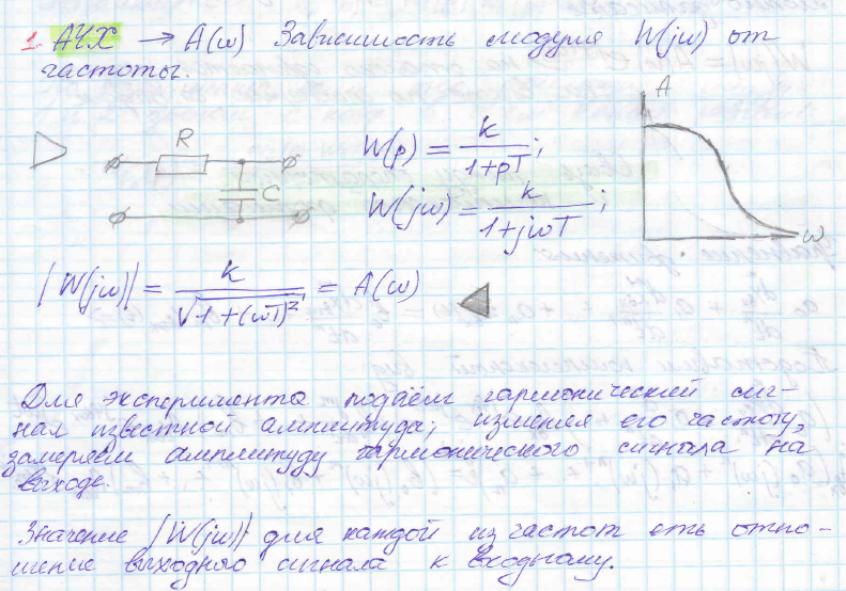 1. АЧХ → A(ω) Зависимость модуля W(jω) от
частоты.
A
R
C
W(p) = k / (1+pT);
W(jω) = k / (1+jωT);
ω
|W(jω)| = k / √(1+(ωT)²) = A(ω)
Для эксперимента подаём гармонический сиг-
нал известной амплитуда; изменяя его частоту,
замеряем амплитуду гармонического сигнала на
выходе.
Значение |W(jω)| для каждой из частот есть отно-
шение выходного сигнала к входному.